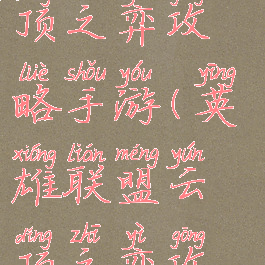 顶之弈攻
lüè shǒu yóu yīng
略手游(英
xióng lián méng yún
雄联盟云
dǐng zhī yì gōng
顶之弈攻